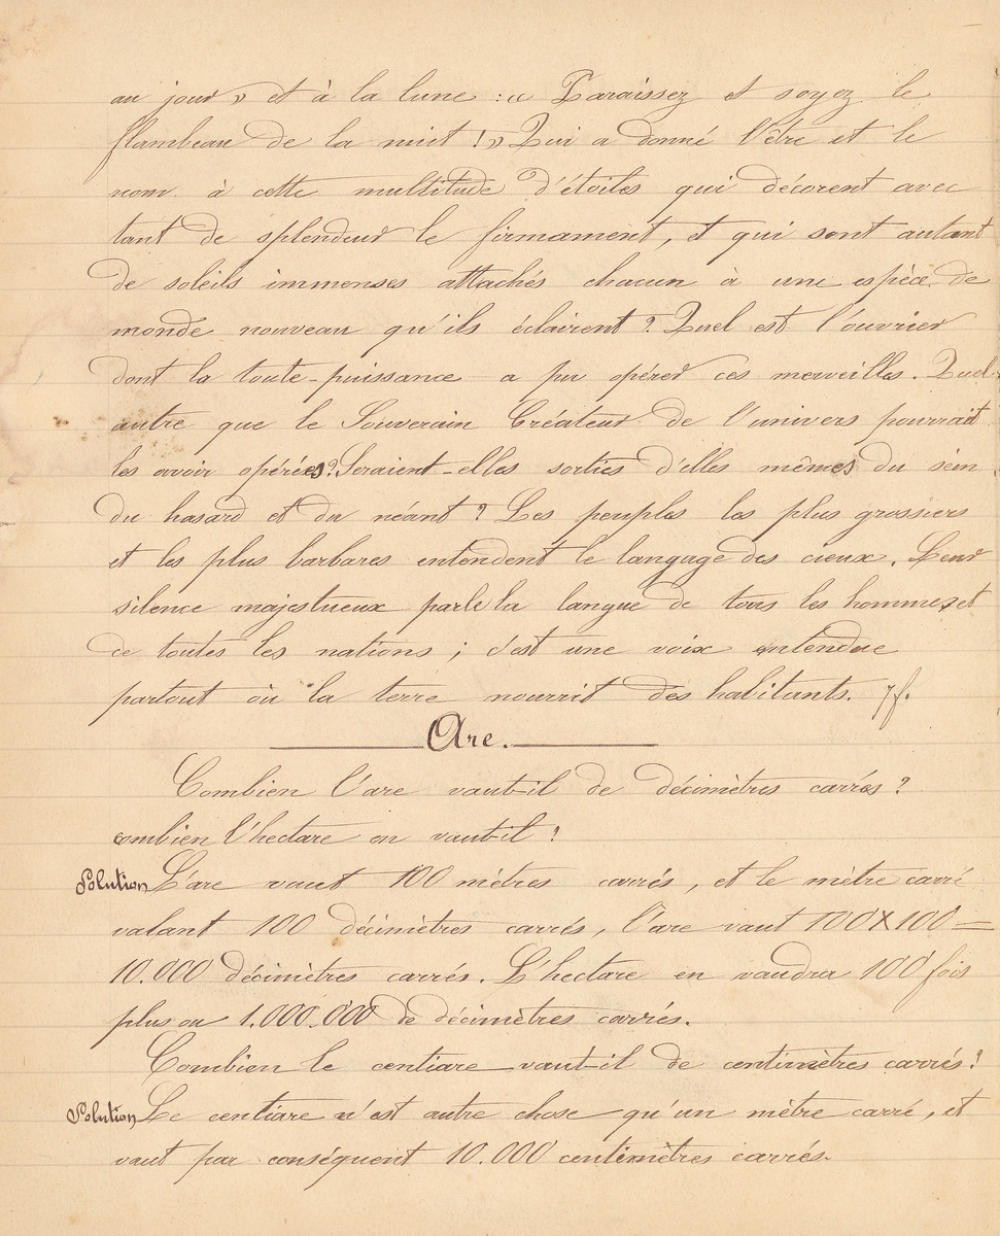 au jour » et à la lune : « Paraissez et soyez le
flambeau de la nuit ! » Qui a donné l'être et le
nom à cette multitude d'étoiles qui décorent avec
tant de splendeur le firmament, et qui sont autant
de soleils immenses attachés chacun à une espèce de
monde nouveau qu'ils éclairent ? Quel est l'ouvrier
dont la toute-puissance a pu opérer ces merveilles. Quel
autre que le Souverain Créateur de l'univers pourrait
les avoir opérées ? Seraient-elles sorties d'elles mêmes du sein
du hasard et du néant ? Les peuples les plus grossiers
et les plus barbares entendent le langage des cieux. Leur
silence majestueux parle la langue de tous les hommes et
de toutes les nations ; c'est une voix entendue
partout où la terre nourrit des habitants.
Are.
Combien l'are vaut-il de décimètres carrés ?
combien l'hectare en vaut-il ?
Solution L'are vaut 100 mètres carrés, et le mètre carré
valant 100 décimètres carrés, l'are vaut 100 X 100 =
10.000 décimètres carrés. L'hectare en vaudra 100 fois
plus ou 1.000.000 de décimètres carrés.
Combien le centiare vaut-il de centimètres carrés ?
Solution Le centiare n'est autre chose qu'un mètre carré, et
vaut par conséquent 10.000 centimètres carrés.